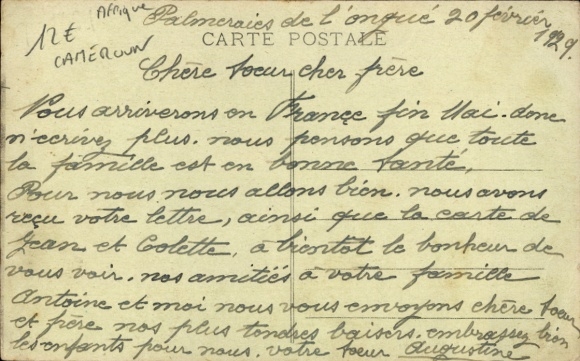 Afrique
12€
CAMÉROUN
Palmeraies de l'ongué 20 février 1929.
CARTE POSTALE
Chère soeur cher frère
Nous arriverons en France fin Mai. donc
n'ecrivez plus. nous pensons que toute
la famille est en bonne santé,
Pour nous nous allons bien. nous avons
reçu votre lettre, ainsi que la carte de
Jean et Colette, à bientôt le bonheur de
vous voir. nos amitiés à votre famille
Antoine et moi nous vous envoyons chère soeur
et frère nos plus tendres baisers. embrassez bien
les enfants pour nous. votre soeur Augustine